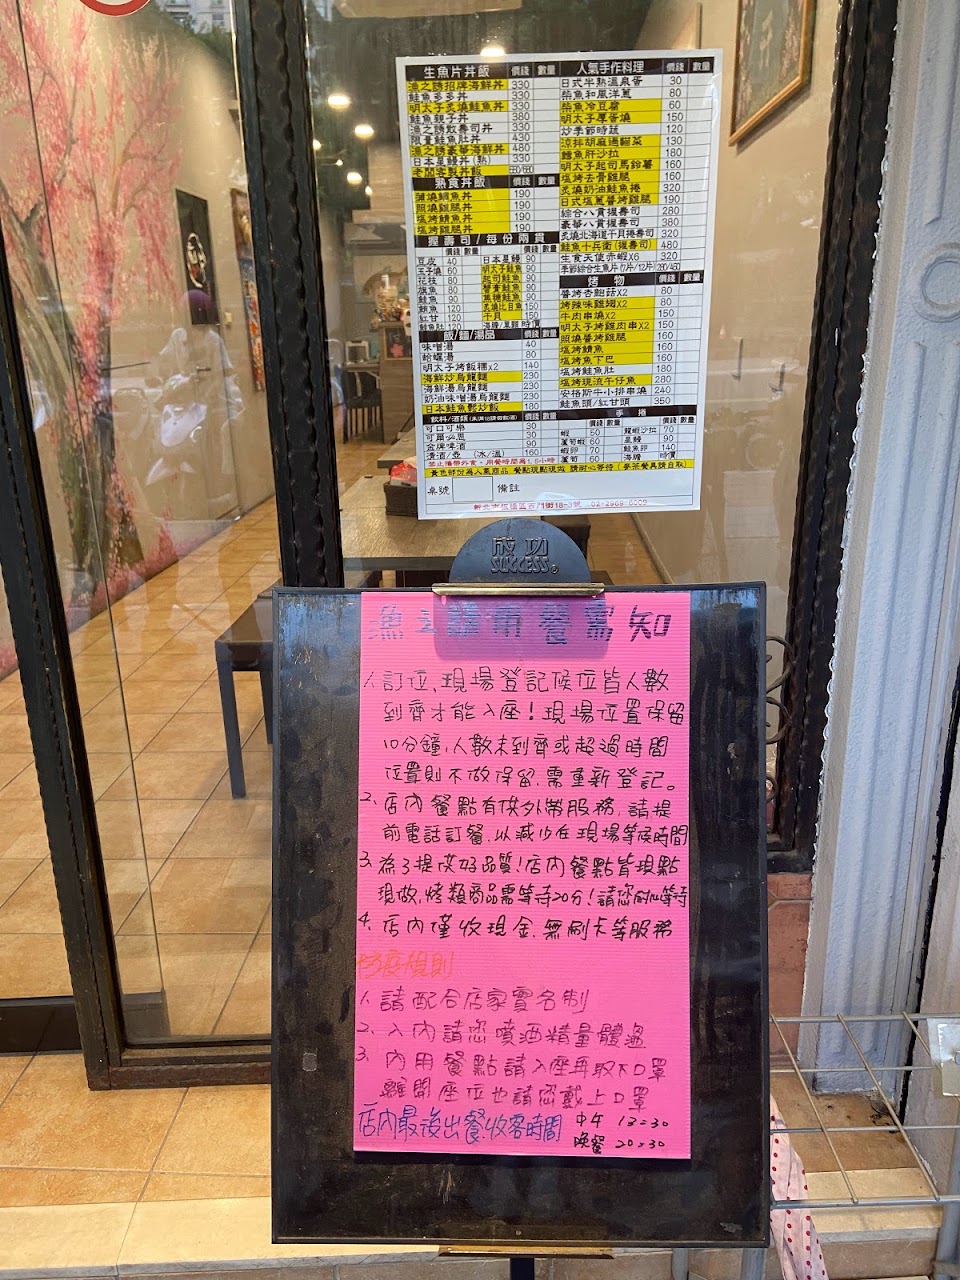 生魚片丼飯 價錢 數量
漁之誘招牌海鮮丼 330
鮭魚多多丼 330
明太子炙燒鮭魚丼 380
鮭魚親子丼 380
漁之誘散壽司丼 330
限量鮭魚肚丼 430
漁之誘豪華海鮮丼 480
日本星鰻丼(熱) 330
老闆客製丼飯
熟食丼飯 價錢 數量
蒲燒鯛魚丼 190
照燒雞腿丼 190
塩烤鯖魚丼 190
塩烤雞腿丼 190
握壽司/每份兩貫
價錢 數量 價錢 數量
豆皮 40 日本星鰻 90
玉子燒 60 明太子鮭魚 90
花枝 80 起司鮭魚 90
旗魚 80
鮭魚 90 焦糖鮭魚 90
鮪魚 120 炙燒比目魚 150
紅甘 120 干貝 150
鮭魚肚 120 時價
飯/麵/湯品 價錢 數量
味噌湯 40
蛤蠣湯 80
明太子烤飯糰x2 140
海鮮炒烏龍麵 230
海鮮湯烏龍麵 230
奶油味噌湯烏龍麵 230
日本鮭魚鬆炒飯 180
價錢 數量
可口可樂 30
可爾必思 30
金牌啤酒 90
清酒/壺 (冰/溫) 160
人氣手作料理 價錢 數量
日式半熟溫泉蛋 30
柴魚和風洋蔥 80
柴魚冷豆腐 60
明太子厚蛋燒 150
炒季節時蔬 120
涼拌胡麻過貓菜 130
鱈魚肝沙拉 180
明太子起司馬鈴薯 160
塩烤去骨雞腿 160
炙燒奶油鮭魚捲 320
日式塩蔥醬烤雞腿 190
綜合八貫握壽司 280
豪華八貫握壽司 380
炙燒北海道干貝捲壽司 320
鮭魚十兵衛(握壽司) 480
生食天使赤蝦X6 320
季節綜合生魚片(7片/12片) 280/450
烤物 價錢 數量
醬烤杏鮑菇X2 80
烤辣味雞翅X2 80
牛肉串燒X2 150
明太子烤雞肉串X2 150
照燒醬烤雞腿 160
塩烤鯖魚 160
塩烤魚下巴 160
塩烤鮭魚肚 180
塩烤現流午仔魚 280
安格斯牛小排串燒 240
鮭魚頭/紅甘頭 350
手捲
價錢 數量 價錢 數量
蝦 50 龍蝦沙拉 70
蘆筍蝦 60 星鰻 90
蝦卵 70 鮭魚卵 140
蘆筍 60 海膽 時價
禁止攜帶外食,用餐時間為1.5小時
黃色部份為人氣商品 餐點現點現做 請耐心等待 (醬茶餐具請自取)
桌號 備註
02-2969-6009
成功
SUCCESS
漁之誘用餐需知
1. 訂位、現場登記候位皆人數
到齊才能入座!現場位置保留
10分鐘,人數未到齊或超過時間
位置則不做保留.需重新登記。
2. 店內餐點有供外帶服務,請提
前電話訂餐.以減少在現場等候時間
3. 為了提高好品質!店內餐點皆現點
現做,烤類商品需等待20分!請您耐心等待
4. 店內僅收現金.無刷卡等服務
防疫規則
1. 請配合店家實名制
2. 入內請您噴酒精量體溫
3. 內用餐點請入座再取下口罩
離開座位也請您戴上口罩
店內最後出餐.收客時間 中午 13:30
晚餐 20:30